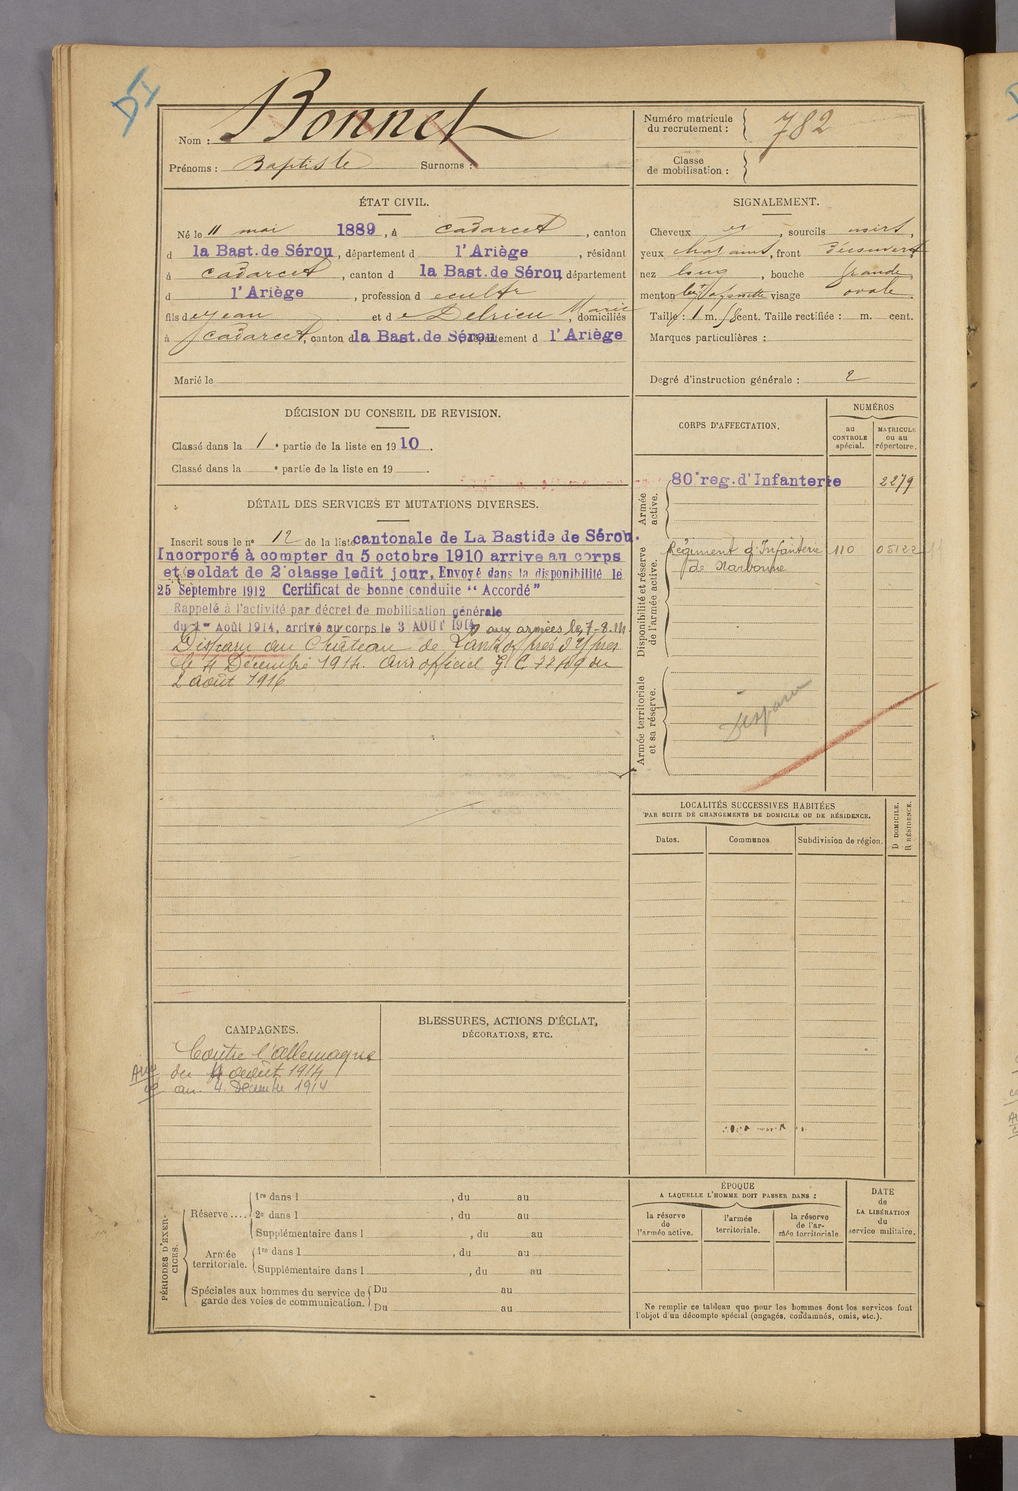 DI
Nom : Bonnet
Prénoms : Baptiste Surnoms :
Numéro matricule
du recrutement : 782
Classe
de mobilisation :
ÉTAT CIVIL.
Né le 11 mai 1889, à Cadarcet, canton
d la Bast. de Sérou, département d l'Ariège, résidant
à Cadarcet, canton d la Bast. de Sérou, département
d l'Ariège, profession d cultr
fils de Jean et de Delrieu Marie, domiciliés
à Cadarcet, canton d la Bast. de Sérou, département d l'Ariège
Marié le
SIGNALEMENT.
Cheveux et, sourcils noirs,
yeux chatains, front découvert
nez long, bouche grande
menton visage ovale
Taille : 1 m. 58 cent. Taille rectifiée : m. cent.
Marques particulières :
Degré d'instruction générale : 2
DÉCISION DU CONSEIL DE REVISION.
Classé dans la 1e partie de la liste en 1910.
Classé dans la e partie de la liste en 19 .
DÉTAIL DES SERVICES ET MUTATIONS DIVERSES.
Inscrit sous le n° 12 de la liste cantonale de La Bastide de Sérou.
Incorporé à compter du 5 octobre 1910 arrive au corps
et soldat de 2e classe ledit jour, Envoyé dans la disponibilité le
25 Septembre 1912 Certificat de bonne conduite "Accordé"
Rappelé à l'activité par décret de mobilisation générale
du 1er Août 1914, arrivé au corps le 3 AOUT 1914 aux armées le 7-8-14
Disparu au Château de près d'Ypres
le 4 Décembre 1914. Avis officiel du
2 août 1916
CORPS D'AFFECTATION.
NUMÉROS
au
CONTROLE
spécial.
MATRICULE
ou au
répertoire.
Armée
active.
80e reg. d'Infanterie 2279
Disponibilité et réserve
de l'armée active.
Régiment d'Infanterie 110 05122
de Narbonne
Armée territoriale
et sa réserve.
Disparu
LOCALITÉS SUCCESSIVES HABITÉES
PAR SUITE DE CHANGEMENTS DE DOMICILE OU DE RÉSIDENCE.
Dates. Communes Subdivision de région.
D DOMICILE.
R RÉSIDENCE.
CAMPAGNES.
Contre l'Allemagne
du 4 août 1914
au 4 Décembre 1914
BLESSURES, ACTIONS D'ÉCLAT,
DÉCORATIONS, ETC.
PÉRIODES D'EXER-
CICES.
Réserve ....
1re dans l , du au
2e dans l , du au
Supplémentaire dans l , du au
Armée
territoriale.
1re dans l , du au
Supplémentaire dans l , du au
Spéciales aux hommes du service de
garde des voies de communication.
Du au
Du au
ÉPOQUE
A LAQUELLE L'HOMME DOIT PASSER DANS :
la réserve
de
l'armée active.
l'armée
territoriale.
la réserve
de l'ar-
mée territoriale.
DATE
de
LA LIBÉRATION
du
service militaire.
Ne remplir ce tableau que pour les hommes dont les services font
l'objet d'un décompte spécial (engagés, condamnés, omis, etc.).